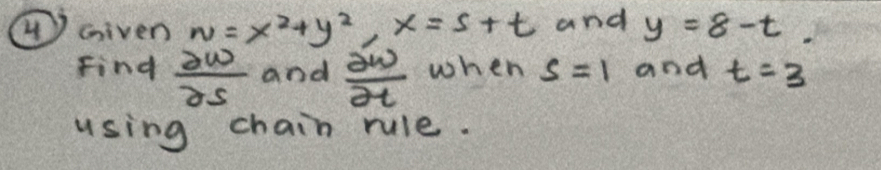 ④ Given w = x²+y², x = s + t and y = 8 - t.
Find ∂w/∂s and ∂w/∂t when s = 1 and t = 3
using chain rule.